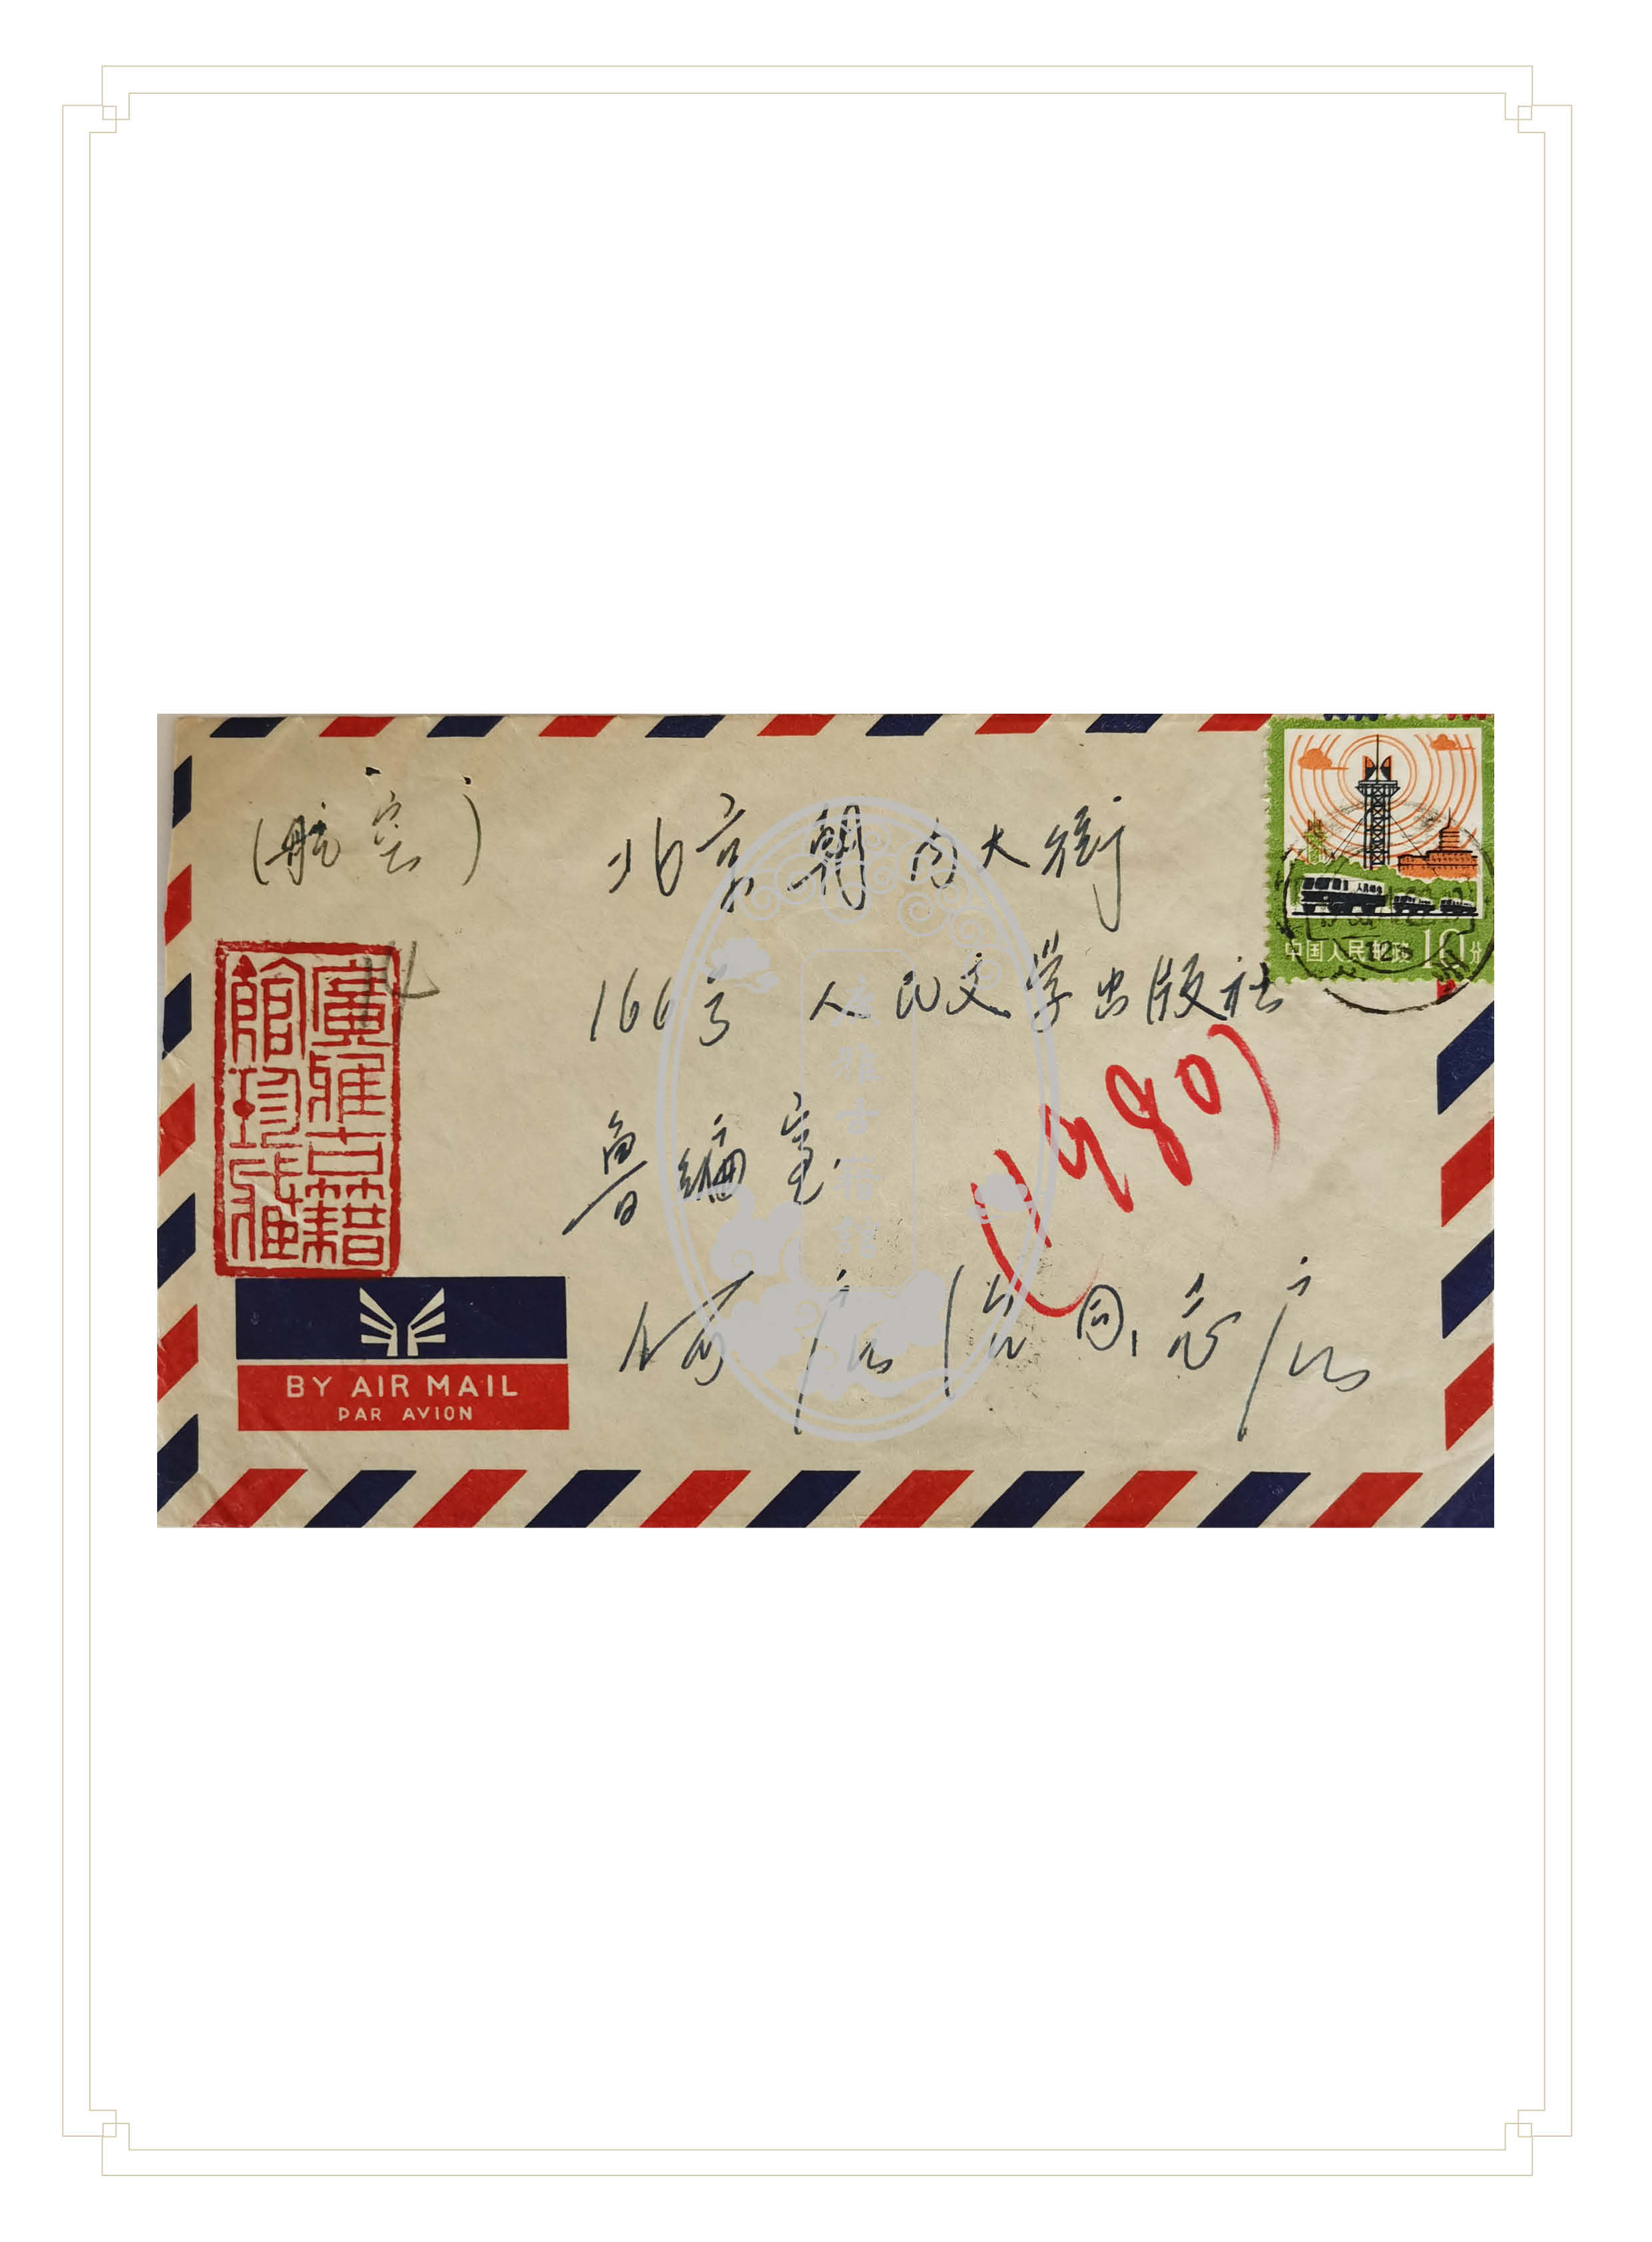 (航空)
北京朝内大街
166号 人民文学出版社
鲁编室
(1980)
同志
中国人民邮政 10分
廣雅古籍
館珍藏
BY AIR MAIL
PAR AVION